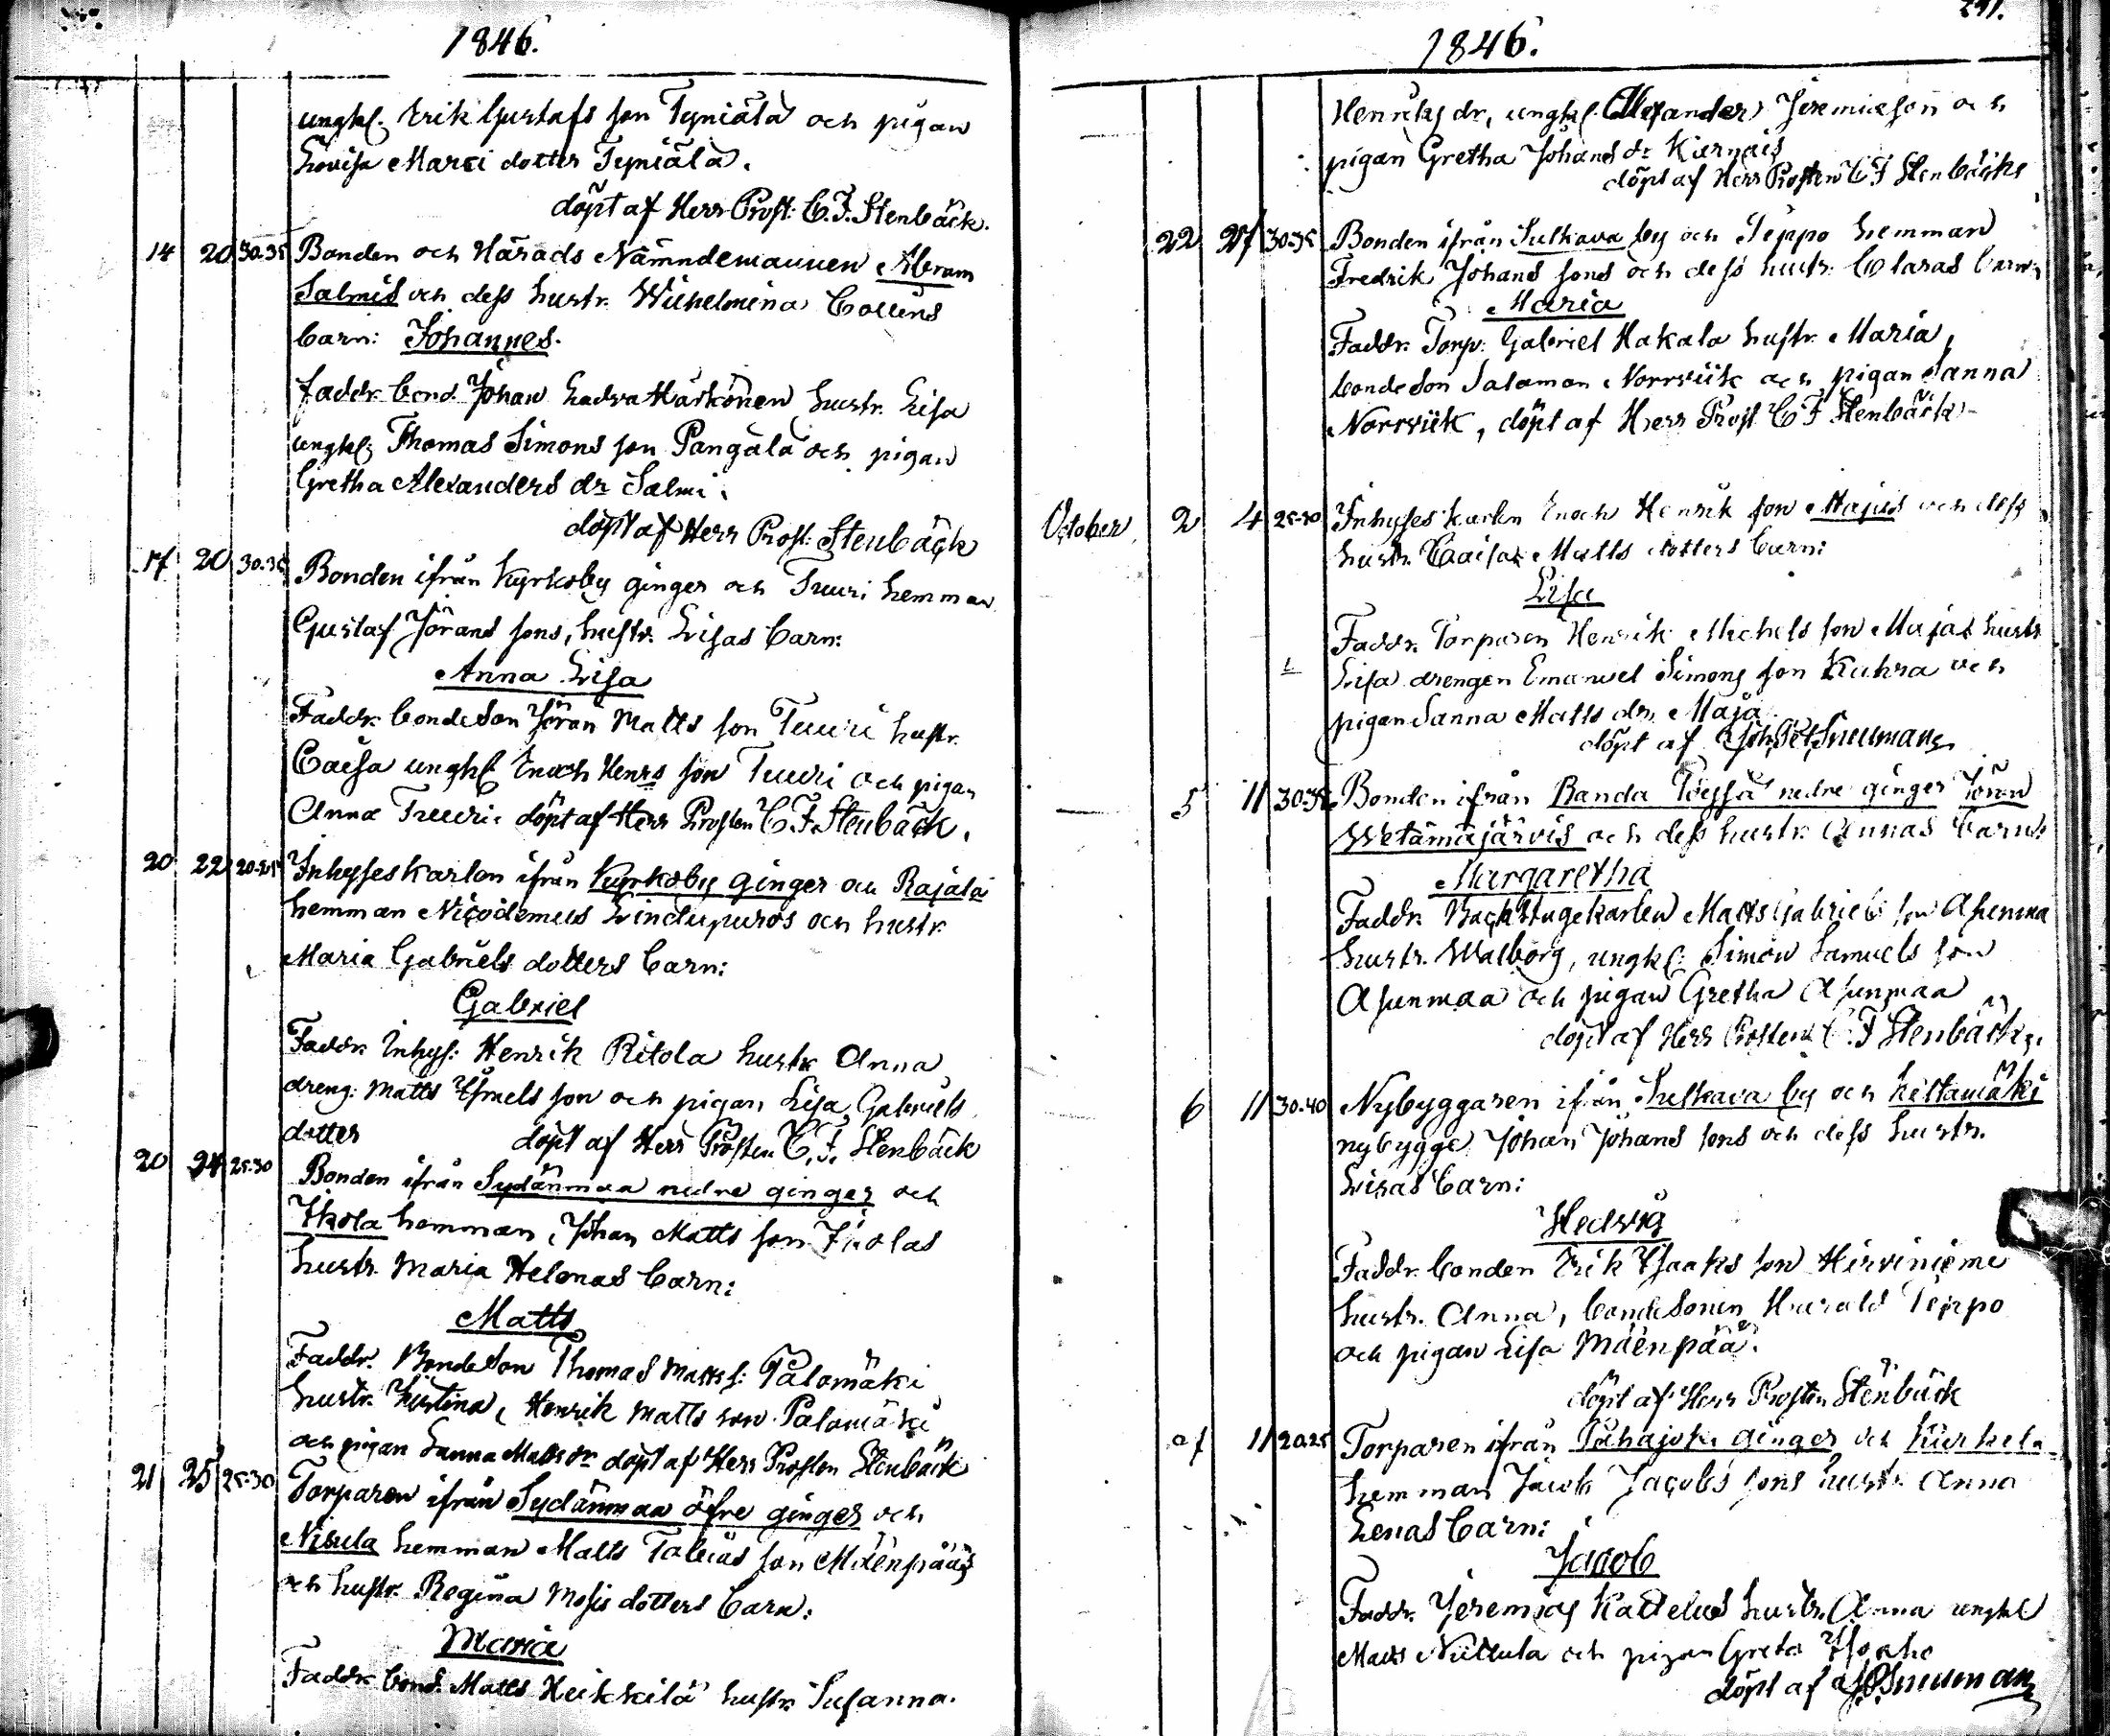 1846.
ungk. Erik Gustafs son Tyniälä och pigan
Lovisa Marci dotter Tyniälä.
döpt af Herr Prost: C. F. Stenbäck.
14 20 30.35 Bonden och Härads Nämndemannen Abram
Salmis och dess hustr. Wilhelmina Collins
barn: Johannes.
faddr. bond. Johan Ladva Härkönen hustr. Lisa
ungk. Thomas Simons son Pangala och pigan
Gretha Alexanders dr Salmi.
döpt af Herr Prost: Stenbäck
17 20 30.35 Bonden ifrån Kyrkoby ginger och Tuuri hemman
Gustaf Jörans sons, hustr. Lisas barn:
Anna Lisa
Faddr. bondeson Jöran Matts son Tuuri hustr.
Caisa ungk. Enoch Henrs son Tuuri och pigan
Anna Tuuri. döpt af Herr Prosten C. F. Stenbäck.
20 22 20-25 Inhyseskarlen ifrån Kyrkoby ginger och Rajala
hemman Nicodemus Lindupuros och hustr
Maria Gabriels dotters barn:
Gabriel
Faddr. Inhys: Henrik Ritola hustr Anna
dreng: Matts Israels son och pigan Lisa Gabriels
dotter döpt af Herr Prosten C. F. Stenbäck
20 24 25.30 Bonden ifrån Sydänmaa nedre ginger och
Ikola hemman, Johan Matts son Ikolas
hustr. Maria Helenas barn:
Matts
Faddr. Bondeson Thomas Matts s: Palomäki
hustr. Kistina, Henrik Matts son Palomäki
och pigan Sanna Matts dr döpt af Herr Prosten Stenbäck
21 25 25-30 Torparen ifrån Sydänmaa öfre ginger och
Nisula hemman Matts Tobias son Mäenpääs
och hustr. Regina Mosis dotters barn:
Maria
Faddr. bond. Matts Heikkilä hustr. Susanna.
291.
1846.
Henriks dr, ungk. Alexander Jeremiæson och
pigan Gretha Johans dr Karnais
döpt af Herr Prosten C F Stenbäck
22 27 30-35 Bonden ifrån Sulkava by och Teppo hemman
Fredrik Johans sons och dess hustr. Claras barn:
Maria
Faddr. Torp: Gabriel Hakala hustr. Maria,
bondeson Salomon Norrviik och pigan Sanna
Norrviik, döpt af Herr Prost C F Stenbäck
October 2 4 25-30 Inhyses karlen Enoch Henrik son Majas och dess
hustr. Caisa Matts dotters barn:
Lisa
Faddr. Torparen Henrik Michels son Majas hustr
Lisa drengen Emanuel Simons son Kuhra och
pigan Sanna Matts dr. Maja
döpt af Snellman
5 11 30.35 Bonden ifrån Randa Töysä nedre ginger Jöran
Wetämäjärvis och dess hustr. Annas barn:
Margaretha
Faddr. Backstugekarlen Matts Gabriels son Asunmaa
hustr. Walborg, ungk: Simon Samuels son
Asunmaa och pigan Gretha Asunmaa
döpt af Herr Prosten C. F Stenbäck.
6 11 30-40 Nybyggaren ifrån Sulkava by och Kiltamäki
nybygge Johan Johans sons och dess hustr.
Lisas barn:
Hedvig
Faddr. bonden Erik Isaaks son Hirviniemi
hustr. Anna, bondesonen Harald Teppo
och pigan Lisa Mäenpää.
döpt af Herr Prosten Stenbäck
7 11 20.25 Torparen ifrån Pahajoki ginger och Kirkela
hemman Jacob Jacobs sons hustr. Anna
Lenas barn:
Jacob
Faddr. Jeremias Kattelus hustr. Anna ungk
Matts Niilula och pigan Greta
döpt af Snellman